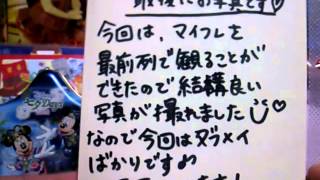 最後にお写真です♡
今回は、マイフレを
最前列で観ることが
できたので結構良い
写真が撮れました♡
なので今回はダラメイ
ばかりです♪